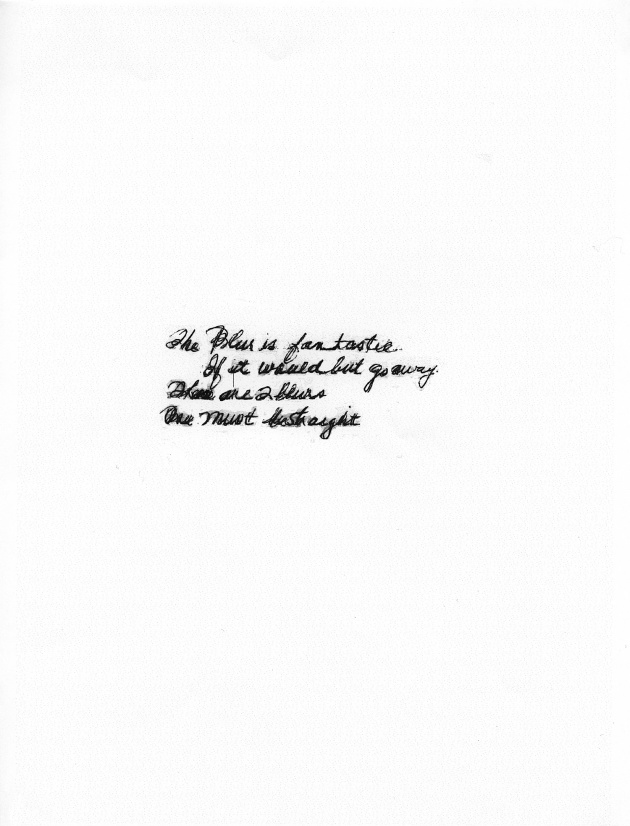 The Blur is fantastic.
If it would but go away.
There are 2 blurs
One must be straight